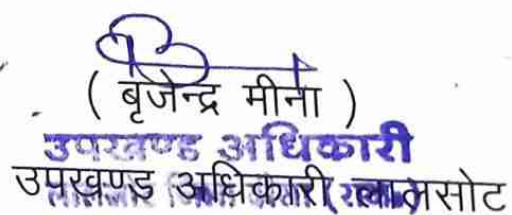 ( बृजेन्द्र मीना )
उपखण्ड अधिकारी
उपखण्ड अधिकारी लालसोट